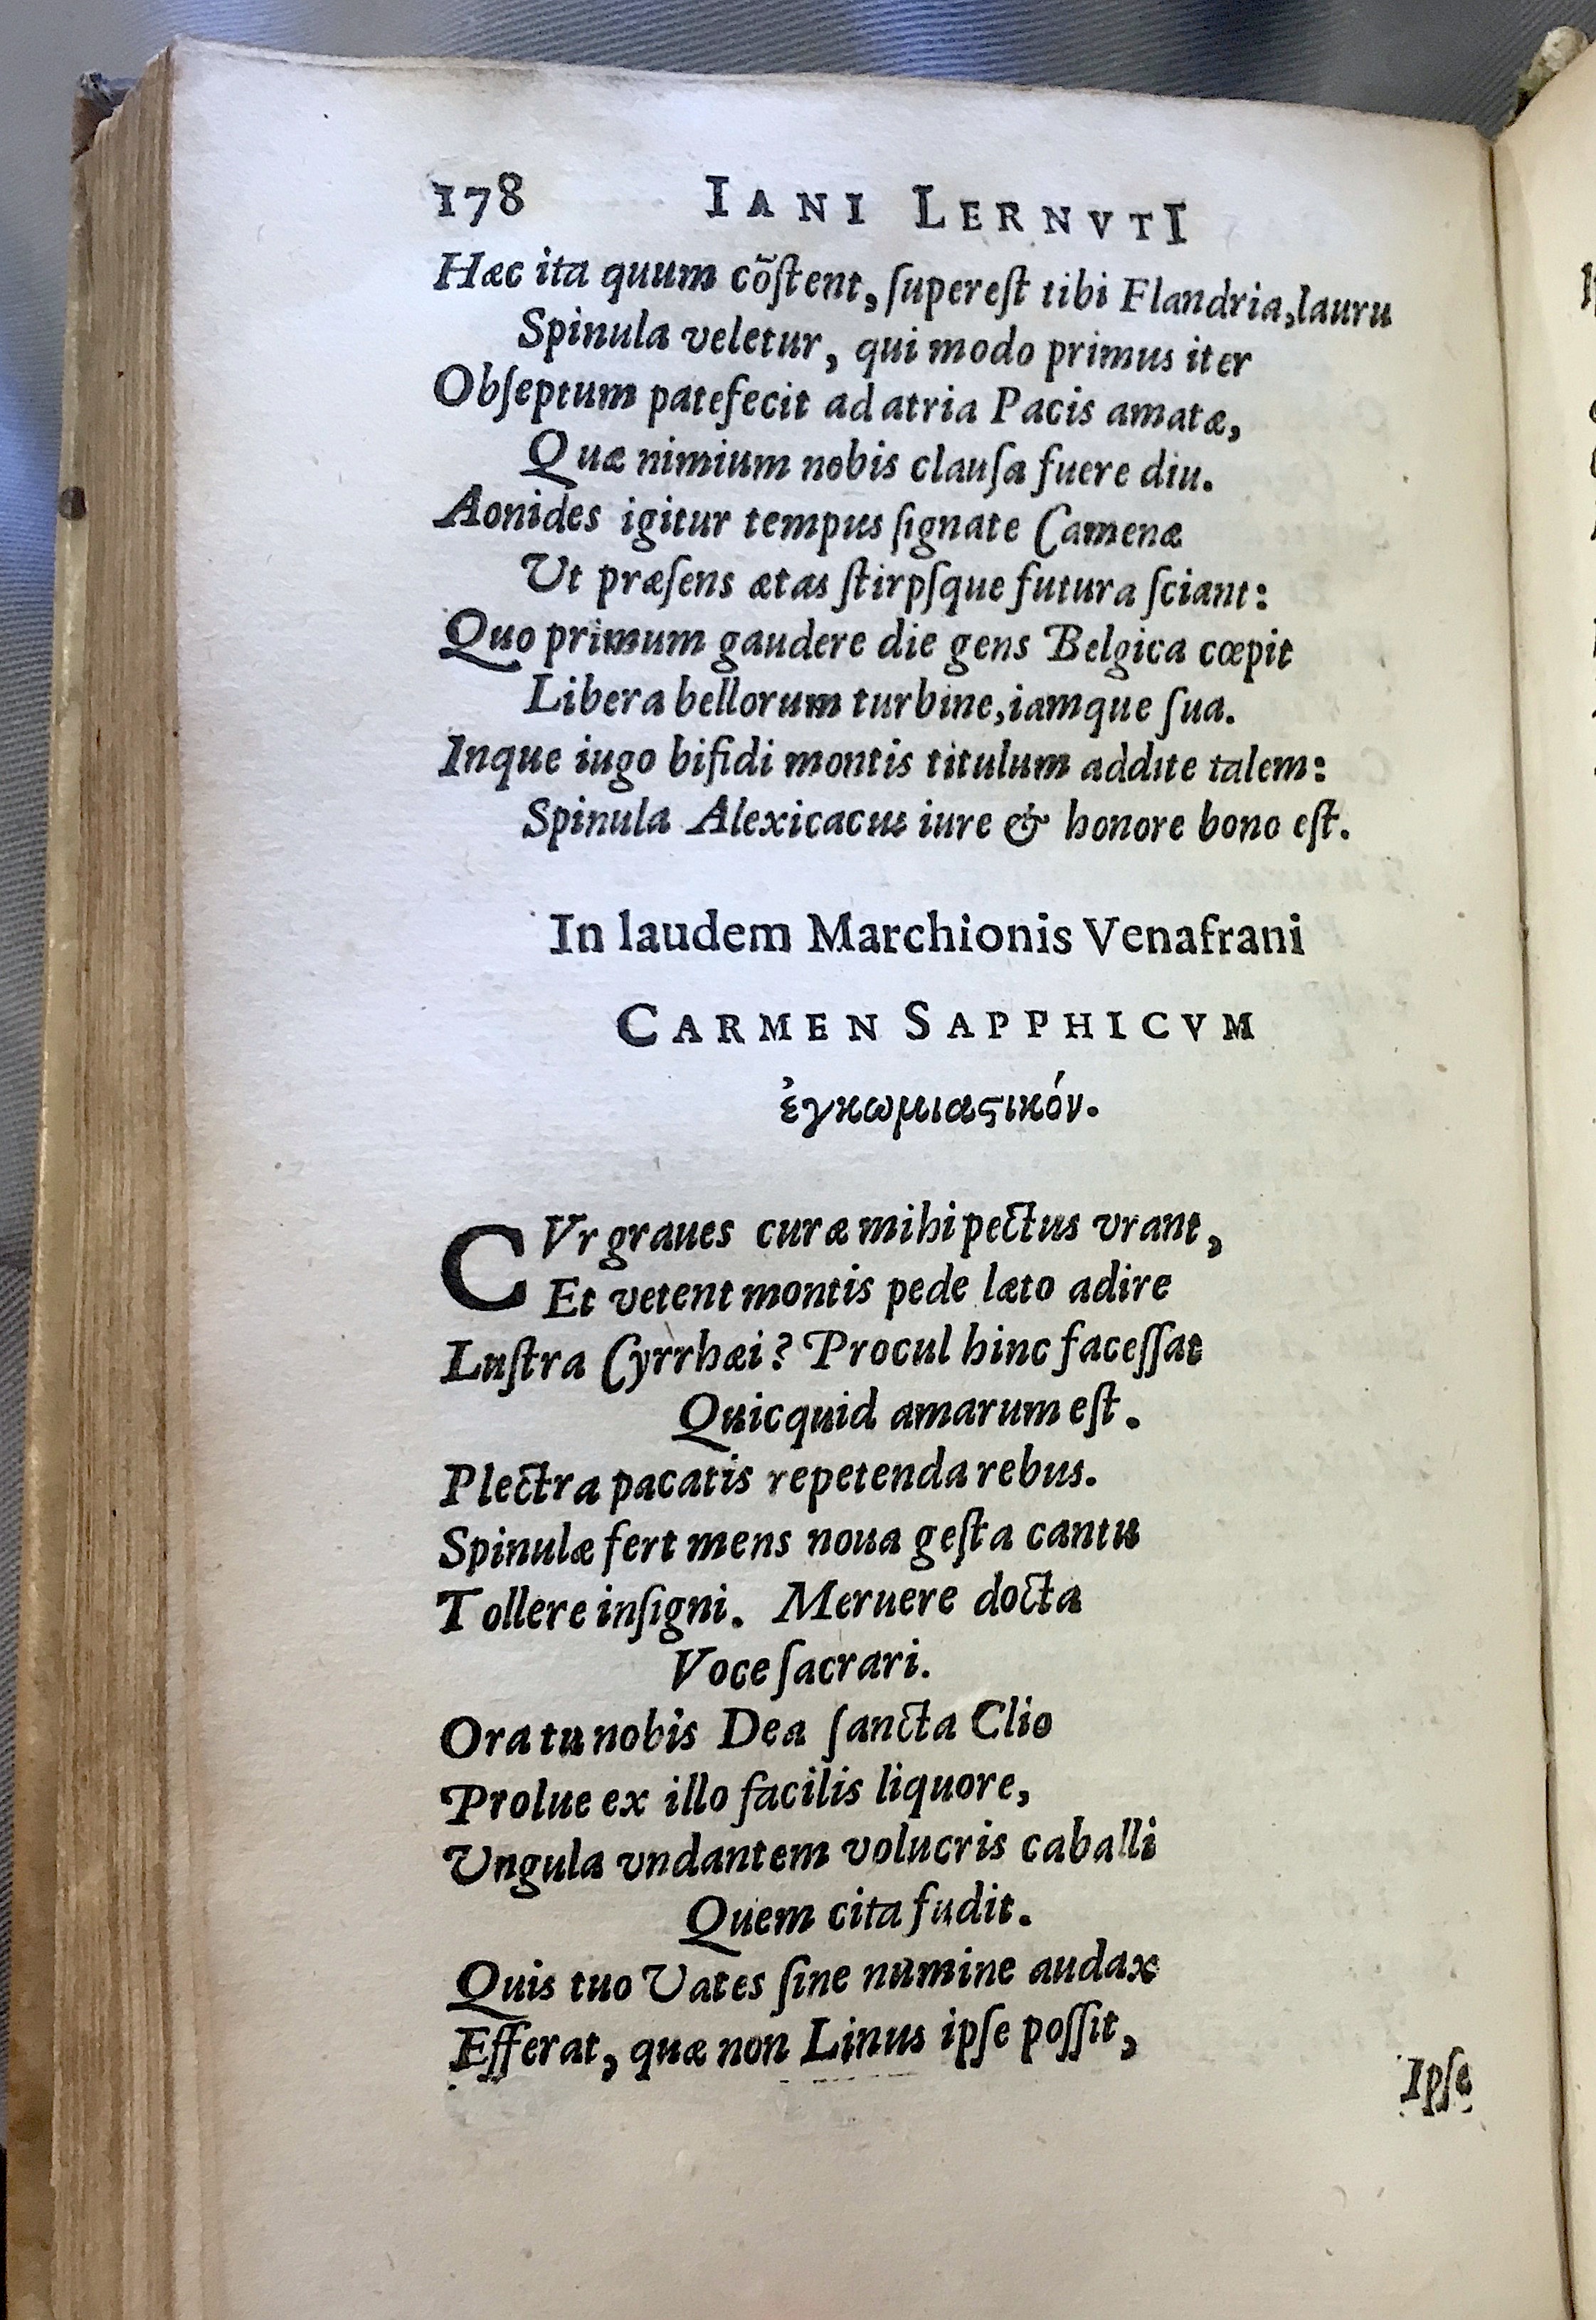 178 IANI LERNVTI
Hæc ita quum cõſtent, ſupereſt tibi Flandria, lauru
Spinula veletur, qui modo primus iter
Obſeptum patefecit ad atria Pacis amatæ,
Quæ nimium nobis clauſa fuere diu.
Aonides igitur tempus ſignate Camenæ
Ut præſens ætas ſtirpſque futura ſciant:
Quo primum gaudere die gens Belgica cœpit
Libera bellorum turbine, iamque ſua.
Inque iugo bifidi montis titulum addite talem:
Spinula Alexicacus iure & honore bono eſt.
In laudem Marchionis Venafrani
CARMEN SAPPHICVM
ἐγκωμιαϛικόν.
CVr graues curæ mihi pectus vrant,
Et vetent montis pede læto adire
Luſtra Cyrrhæi? Procul hinc faceſſat
Quicquid amarum eſt.
Plectra pacatis repetenda rebus.
Spinulæ fert mens noua geſta cantu
Tollere inſigni. Meruere docta
Voce ſacrari.
Ora tu nobis Dea ſancta Clio
Prolue ex illo facilis liquore,
Ungula vndantem volucris caballi
Quem cita fudit.
Quis tuo Uates ſine numine audax
Efferat, quæ non Linus ipſe poſſit,
Ipſe